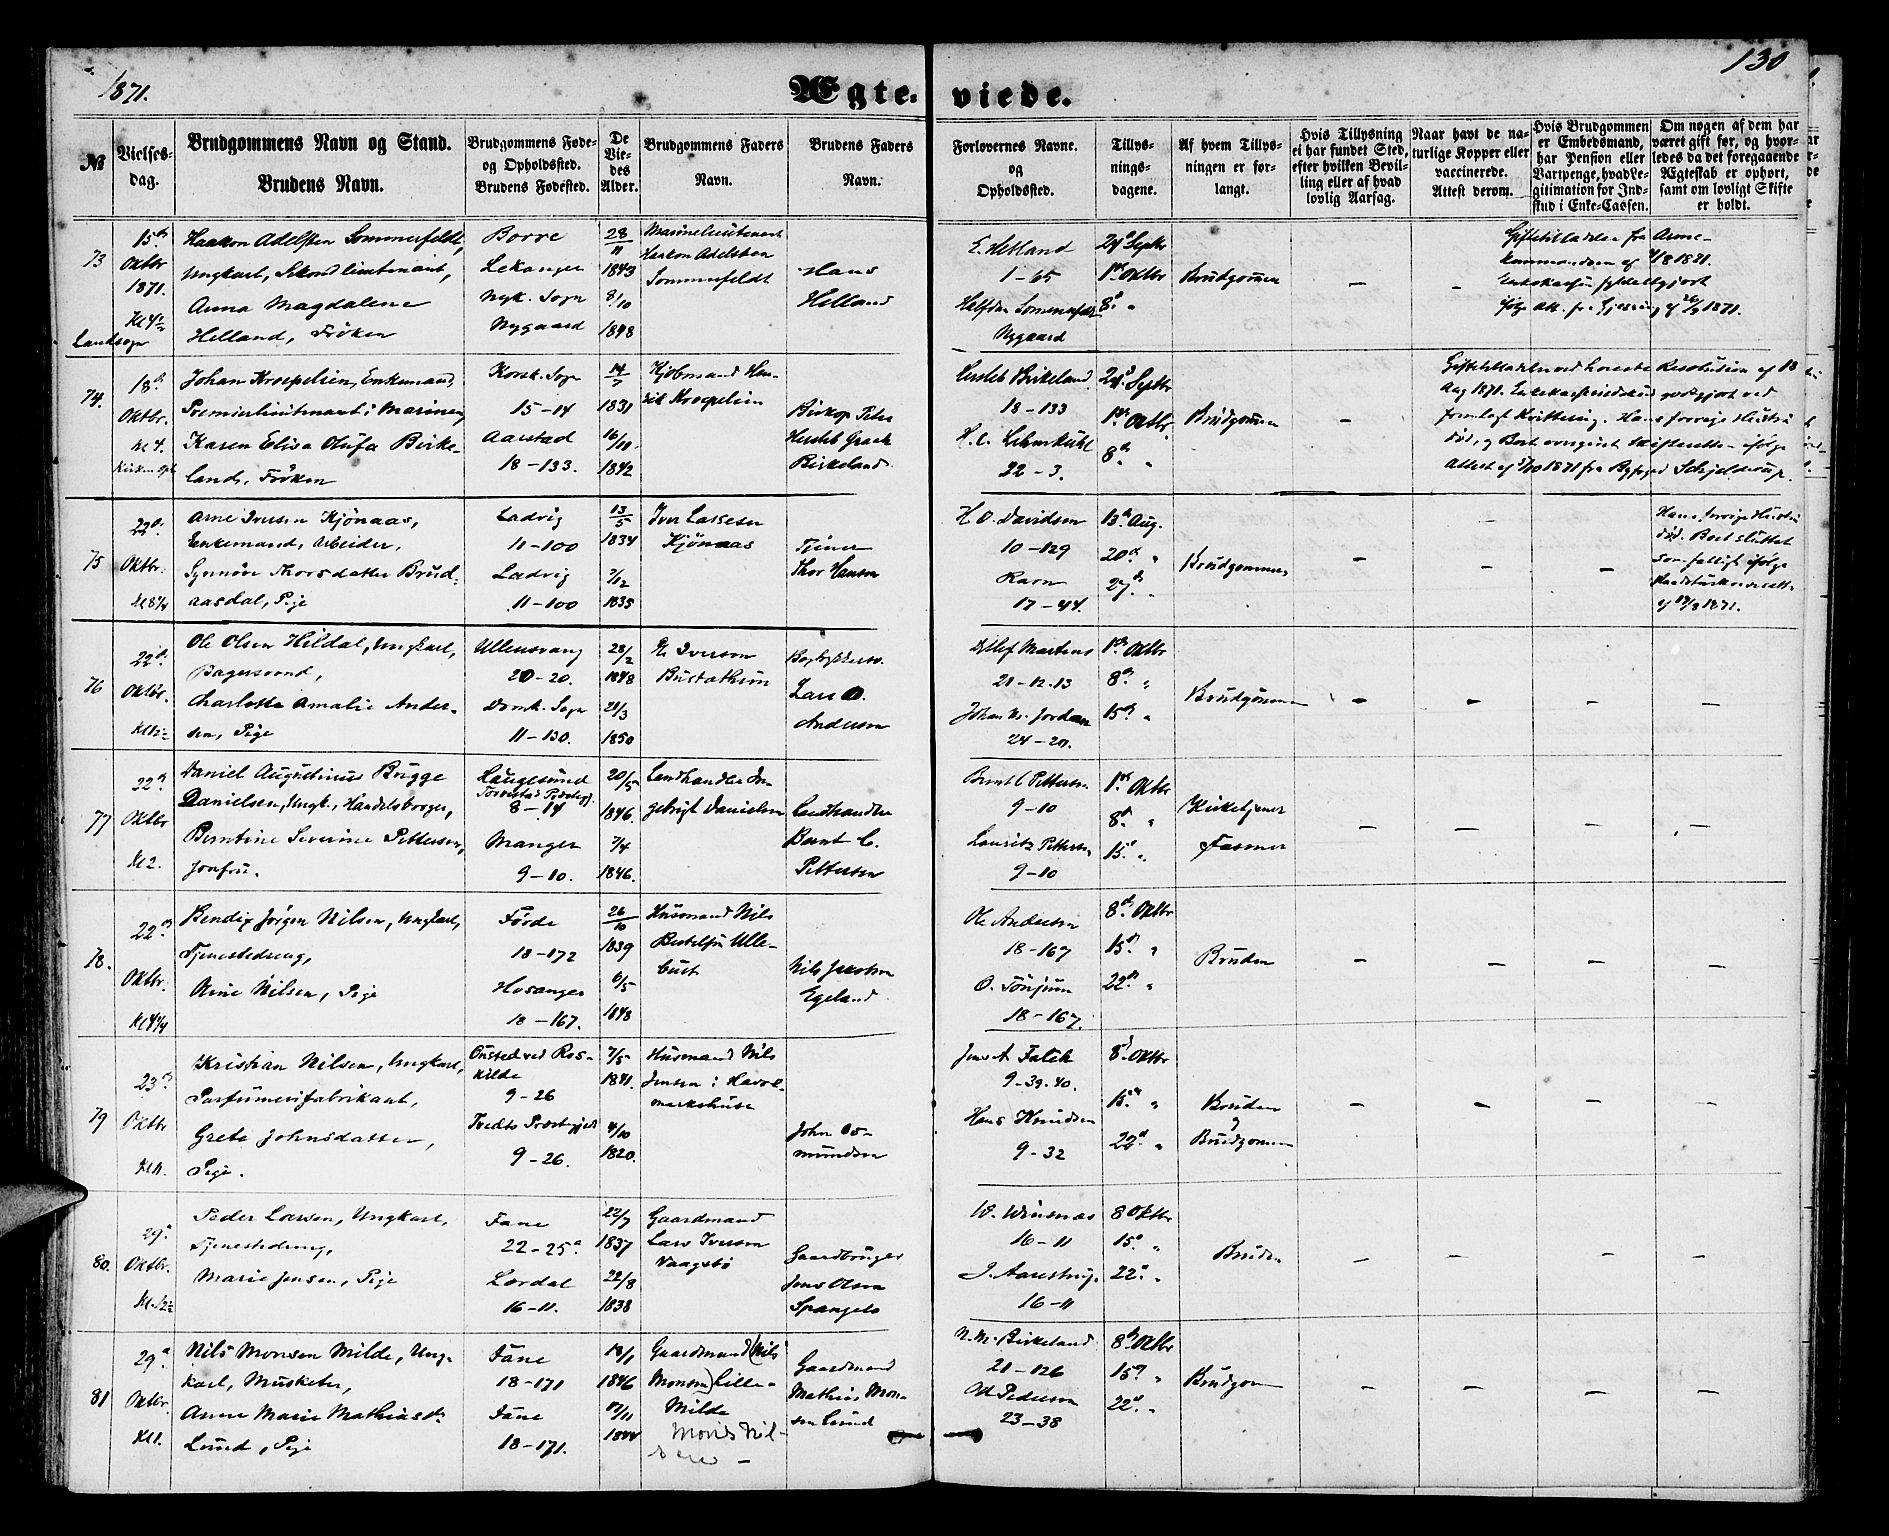 1871.
Ægte-viede.
130
№
Vielses-dag.
Brudgommens Navn og Stand.
Brudens Navn.
Brudgommens Føde- og Opholdssted.
Brudens Fødested.
De Vie-des Alder.
Brudgommens Faders Navn.
Brudens Faders Navn.
Forlovernes Navne. og Opholdssted.
Tillys-nings-dagene.
Af hvem Tillys-ningen er for-langt.
Hvis Tillysning ei har fundet Sted, efter hvilken Bevil-ling eller af hvad lovlig Aarsag.
Naar havt de na-turlige Kopper eller vaccinerede. Attest derom.
Hvis Brudgommen er Embedsmand, har Pension eller Vartpenge, hvad Le-gitimation for Ind-skud i Enke-Cassen.
Om nogen af dem har været gift før, og hvor-ledes da det foregaaende Ægteskab er ophørt, samt om lovligt Skifte er holdt.
73
15de Oktbr 1871. Kl 4½
Landsogn
Haakon Adelsten Sommerfeldt,
Ungkarl, Sekondlieutenant,
Anna Magdalene
Helland, Frøken
Borre
Lekanger
Nyk. Sogn
Nygaard
28/11 1843
8/10 1848
Marinelieutenant
Haakon Adelsten
Sommerfeldt
Hans
Helland
E. Hetland
1-65
Halfdan Sommerfeldt
Nygaard
24de Septbr
1ste Oktbr
8de "
Brudgommen
Giftetilladelse fra Arme-
kommandoen af
1871.
74.
18de Oktbr. Kl 4.
Johan Kroepelien, Enkemand,
Premierlieutenant i Marinen,
Karen Elisa Olufa Birke-
land, Frøken
Korsk. Sogn
15-14
Aarstad
18-133.
14/7 1831
16/10. 1842
Kjøbmand Hen-
rik Kroepelien
Biskop Peter
Hersleb Graah
Birkeland.
Hersleb Birkeland
18-133
H. C. Lehmkuhl
22-3.
24de Septbr
1ste Oktbr.
8de "
Brudgommen
Giftetilladelse ved høieste Resolution af 18
Aug 1871. Enkekasseindskud godtgjort ved
fremlagt Kvittering. Hans forrige Hustru
død, og Boet overgivet Skifteretten ifølge
Attest af 5/10 1871 fra Byfoged Schjelderup.
75
22de Oktbr. Kl 8¼
Arne Iversen Kjønaas,
Enkemand, Arbeider,
Synnøve Thorsdatter Brud-
aasdal, Pige
Ladvig
11-100
Ladvig
11-100
13/5 1834
7/12 1835
Iver Lassesen
Kjønaas
Tjener
Thor Hansen
H. O. Davidsen
10-129
Ravn
17-44.
13de Aug.
20de "
27de "
Brudgommen
Hans forrige Hustru
død. Boet sluttet
som falligt ifølge
1871.
76
22de Oktbr. Kl 12½
Ole Olsen Hildal, Ungkarl,
Bagersvend,
Charlotte Amalie Ander-
sen, Pige
Ullensvang
20-20.
Domk. Sogn
11-130.
28/2 1848
21/3 1850
Ole Iverson
Bustethun
Bogtrykkersv.
Lars O.
Andersen
Ditlef Martens
21-12.13
Johan Kr. Jordan
24-20.
1ste Oktbr
8de "
15de "
Brudgommen
77
22de Oktbr Kl 2.
Daniel Augustinus Brugge
Danielsen, Ungk., Handelsborger,
Berntine Severine Pettersen,
Jomfru.
Haugesund
Torvestad Præstegj.
8-14
Manger
9-10.
20/5 1846.
7/4 1846.
Landhandler In-
gebrigt Danielsen
Landhandler
Bernt C.
Pettersen
Bernt C Pettersen
9-10
Lauritz Pettersen
9-10
1ste Oktbr
8de "
15de "
Kirketjener
Fasmer
78.
22de Oktbr. Kl 4¼
Bendix Jørgen Nilsen, Ungkarl,
Tjenestedreng,
Anne Nilsen, Pige
Førde
18-172
Hosanger
18-167.
26/10 1839
6/5 1848
Husmand Nils
Bertelsen Ulle-
bust
Nils Jacobsen
Egeland
Ole Andersen
18-167
O. Tønjum
18-167.
8de Oktbr
15de "
22de "
Bruden
79
23de Oktbr Kl 11.
Kristian Nilsen, Ungkarl,
Parfumerifabrikant,
Grete Johnsdatter,
Pige.
Onsted ved Ros-
kilde
9-26
Tvedte Præstegjeld
9-26.
7/5 1841.
4/10 1820.
Husmand Nils
Jensen i Havre-
markshuse
John Os-
mundsen
Jens A. Falck
9-39.40.
Hans Knudsen
9-32
8de Oktbr
15de "
22de "
Bruden
og
Brudgommen
80.
29de Oktbr. Kl. 12½
Peder Larsen, Ungkarl,
Tjenestedreng,
Marie Jensen, Pige
Fane
22-25a
Lærdal
16-11.
22/7 1837
22/8 1838
Gaardmand
Lars Iversen
Vaagsbø
Gaardbruger
Jens Olsen
Spangelo
W. Wiesnæs
16-11
J. Aarestrup
16-11
8 Oktbr
15de "
22de "
Bruden
81
29de Oktbr. Kl 1.
Nils Monsen Milde, Ung-
karl, Musketer,
Anne Marie Mathiasdr
Lund, Pige
Fane
18-171
Fane
18-171.
18/1 1846
17/11 1844
Gaardmand (Nils
Monsen) Lille-
Milde
Mons Nil-
sen -
Gaardmand
Mathias Mon-
sen Lund
N. M. Birkeland
21-126
Pederson
23-38
8de Oktbr
15de "
22de "
Brudgom